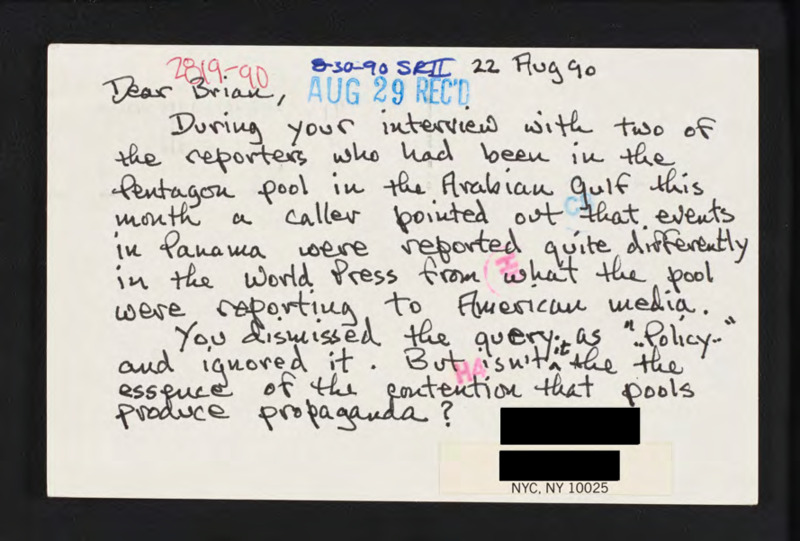 2819-90
8-30-90 SRII 22 Aug 90
AUG 29 REC'D
Dear Brian,
During your interview with two of
the reporters who had been in the
Pentagon pool in the Arabian Gulf this
month a caller pointed out that events
in Panama were reported quite differently
in the World Press from what the pool
were reporting to American media.
You dismissed the query as "..Policy.."
and ignored it. But isn't it the the
essence of the contention that pools
produce propaganda?
H4
NYC, NY 10025